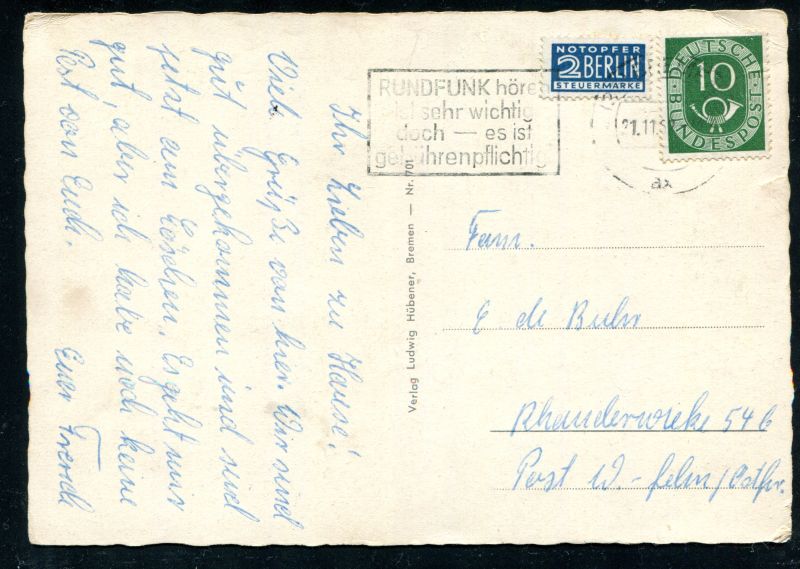 Ihr Lieben zu Hause!
Viele Grüße von hier. Wir sind
gut übergekommen und sind
jetzt am Löschen. Es geht mir
gut, aber ich habe noch keine
Post von Euch.
Euer Frerich
Verlag Ludwig Hübener, Bremen — Nr. 701
RUNDFUNK höre
ist sehr wichtig
doch — es ist
gebührenpflichtig
NOTOPFER
2 BERLIN
STEUERMARKE
DEUTSCHE
10
BUNDESPOST
21.11.5
ax
Fam.
E. de Buhr
Rhauderwieke 54 b
Post W.-fehn/Ostfr.